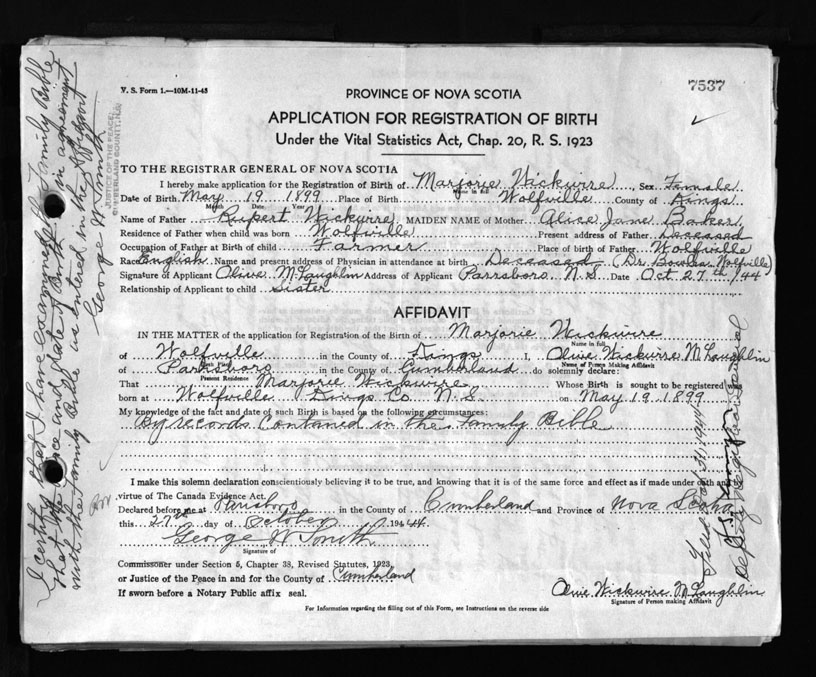 V. S. Form 1.—10M-11-43
PROVINCE OF NOVA SCOTIA
7537
APPLICATION FOR REGISTRATION OF BIRTH
Under the Vital Statistics Act, Chap. 20, R. S. 1923
TO THE REGISTRAR GENERAL OF NOVA SCOTIA
I hereby make application for the Registration of Birth of Marjorie Wickwire Sex Female
Name in full
Date of Birth May 19 1899 Place of Birth Wolfville County of Kings
Month Date Year
Name of Father Rupert Wickwire MAIDEN NAME of Mother Alice Jane Baker
Residence of Father when child was born Wolfville Present address of Father Deceased
Occupation of Father at Birth of child Farmer Place of birth of Father Wolfville
Race English Name and present address of Physician in attendance at birth Deceased (Dr. Bowles Wolfville)
Signature of Applicant Olive McLaughlin Address of Applicant Parrsboro N. S. Date Oct 27th /44
Relationship of Applicant to child Sister
AFFIDAVIT
IN THE MATTER of the application for Registration of the Birth of Marjorie Wickwire
Name in full
of Wolfville in the County of Kings I, Olive Wickwire McLaughlin
Name of Person Making Affidavit
of Parrsboro in the County of Cumberland do solemnly declare:
Present Residence
That Marjorie Wickwire Whose Birth is sought to be registered was
born at Wolfville Kings Co. N. S. on May 19 1899
My knowledge of the fact and date of such Birth is based on the following circumstances:
By records Contained in the Family Bible
I make this solemn declaration conscientiously believing it to be true, and knowing that it is of the same force and effect as if made under oath and
virtue of The Canada Evidence Act.
Declared before me at Parrsboro in the County of Cumberland and Province of Nova Scotia
this 27th day of October 1944
George W Smith
Signature of
Commissoner under Section 5, Chapter 38, Revised Statutes, 1923,
or Justice of the Peace in and for the County of Cumberland
If sworn before a Notary Public affix seal.
Olive Wickwire McLaughlin
Signature of Person making Affidavit
For Information regarding the filling out of this Form, see Instructions on the reverse side
I certify that I have examined the Family Bible
that the place and date of Birth is in agreement
with the Family Bible as entered in the affidavit
George W Smith
JUSTICE OF THE PEACE
CUMBERLAND COUNTY, N.S.
Deputy Registrar General